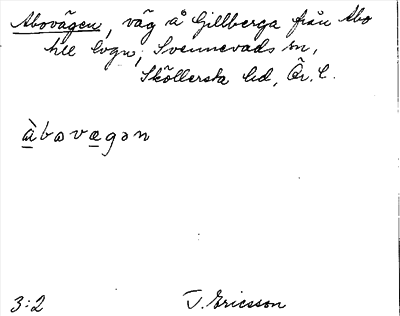 Abovägen, väg å Gillberga från Abo
till lvgr; Svennevads sn,
Sköllersta hd, Ör. l.
àbωvægən
3:2 T. Ericsson